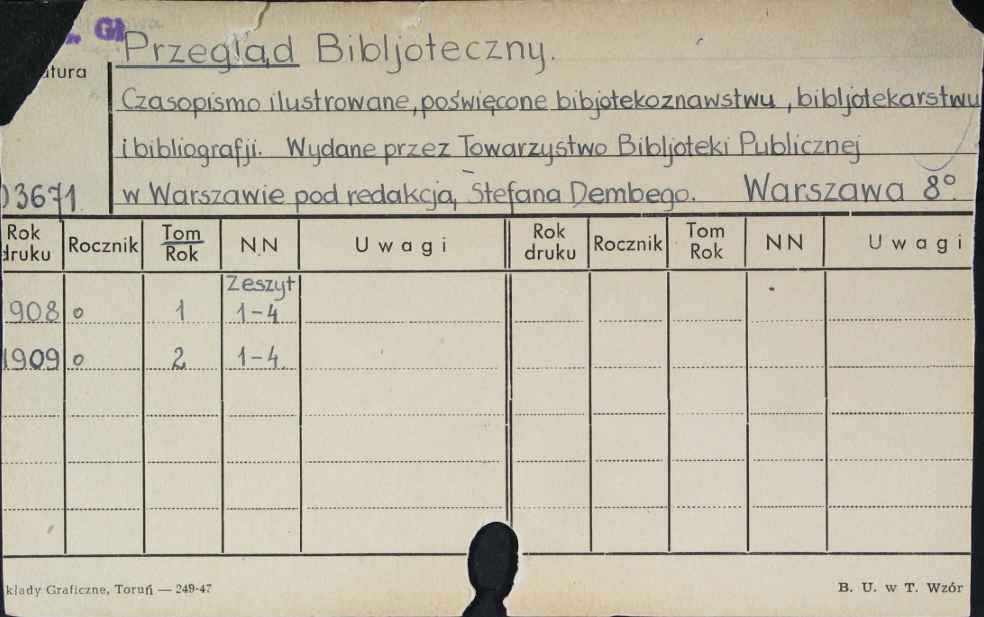 Gł
Przegląd Bibljoteczny.
atura
Czasopismo ilustrowane, poświęcone bibjotekoznawstwu, bibljotekarstwu
i bibliografji. Wydane przez Towarzystwo Bibljoteki Publicznej
03671
w Warszawie pod redakcją Stefana Dembego. Warszawa 8°.
Rok druku Rocznik Tom Rok NN Uwagi Rok druku Rocznik Tom Rok NN Uwagi
Zeszyt
908 o 1 1-4
1909 o 2 1-4
kłady Graficzne, Toruń — 249-47 B. U. w T. Wzór